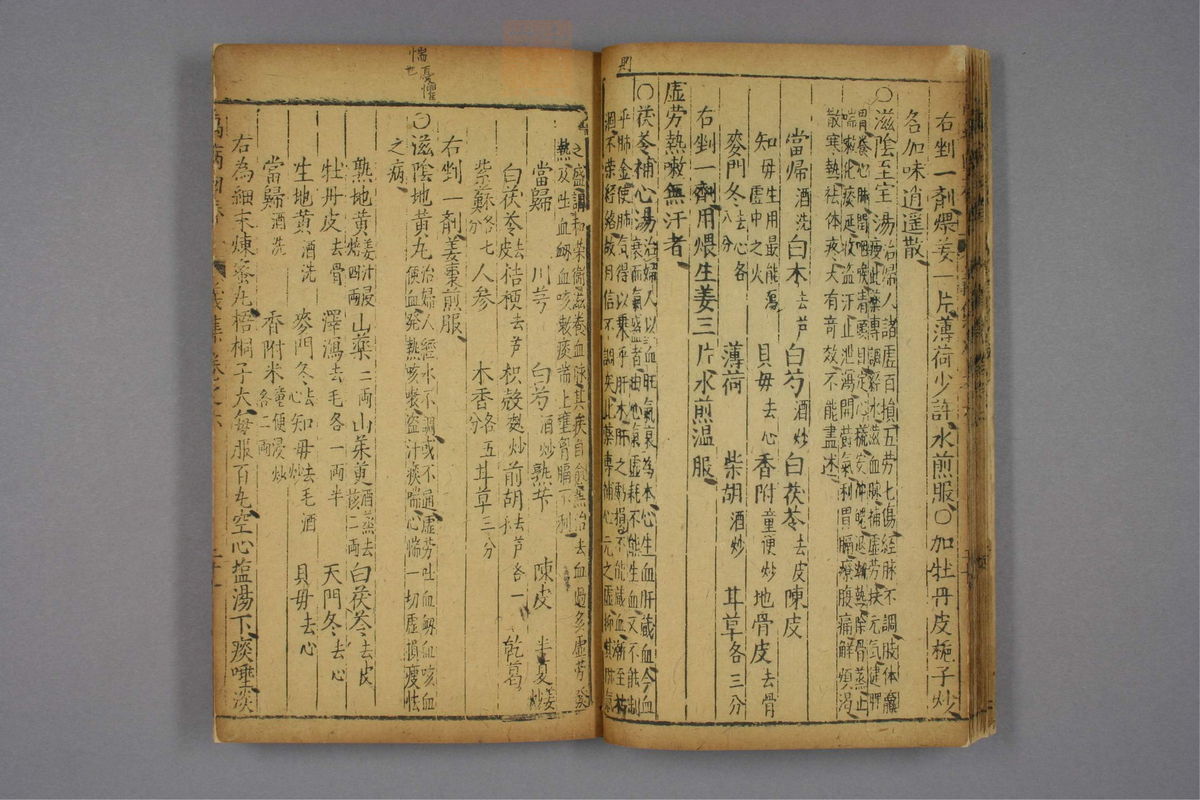 則
右剉一剤煨姜一片薄荷少許水煎服〇加牡丹皮梔子炒
名加味逍遥散
〇滋陰至宝湯治婦人諸虚百損五劳七傷経脉不調肢体羸
瘦此藥專調經水滋血脉補虚劳扶元气健脾
胃養心肺潤咽喉清頭目定心慌安神魄退潮熱除骨蒸止
喘嗽化痰涎收盗汗止泄瀉開欝氣利胃膈療腹痛解煩渴
散寒熱祛体疼大有奇效不能盡述
當帰酒洗白木去芦白芍酒炒白茯苓去皮陳皮
知毋生用最能瀉虚中之火貝毋去心香附童便炒地骨皮去骨
麥門冬去心各八分薄荷柴胡酒炒甘草各三分
右剉一劑用煨生姜三片水煎温服
虚劳熱嗽無汗者
〇茯苓補心湯治婦人以血旺氣衰為本心生血肝藏血今血
衰而氣盛者由心氣虚耗不能生血又不能制
乎肺金使肺气得以乗乎肝木肝之虧損不能藏血漸至枯
涸不荣経絡故月信不調矣此藥專補心元之虚抑其肺氣
之盛調和荣衛滋養血脉其疾自愈兼治去血過多虚劳發
熱及吐血衂血咳嗽痰喘上壅胷膈不利
當歸川芎白芍酒炒熟苄陳皮半夏姜炒
白茯苓去皮桔梗去芦枳殻麸炒前胡去芦各一乾葛
紫蘇各七分人参木香各五分甘草三分
右剉一剤姜棗煎服
〇滋陰地黄丸治婦人經水不調或不通虚劳吐血衂血咳血
便血発熱咳嗽盗汁痰喘心惴一切虚損瘦怯
之病
熟地黄姜汁浸焙四兩山藥二两山茱萸酒蒸去核二兩白茯苓去皮
牡丹皮去骨澤瀉去毛各一两半天門冬去心
生地黄酒洗麥門冬去心知毋去毛酒炒貝毋去心
當歸酒洗香附米童便浸炒各二兩
右為細末煉蜜丸梧桐子大每服百丸空心塩湯下痰唾淡
惴憂懼
也